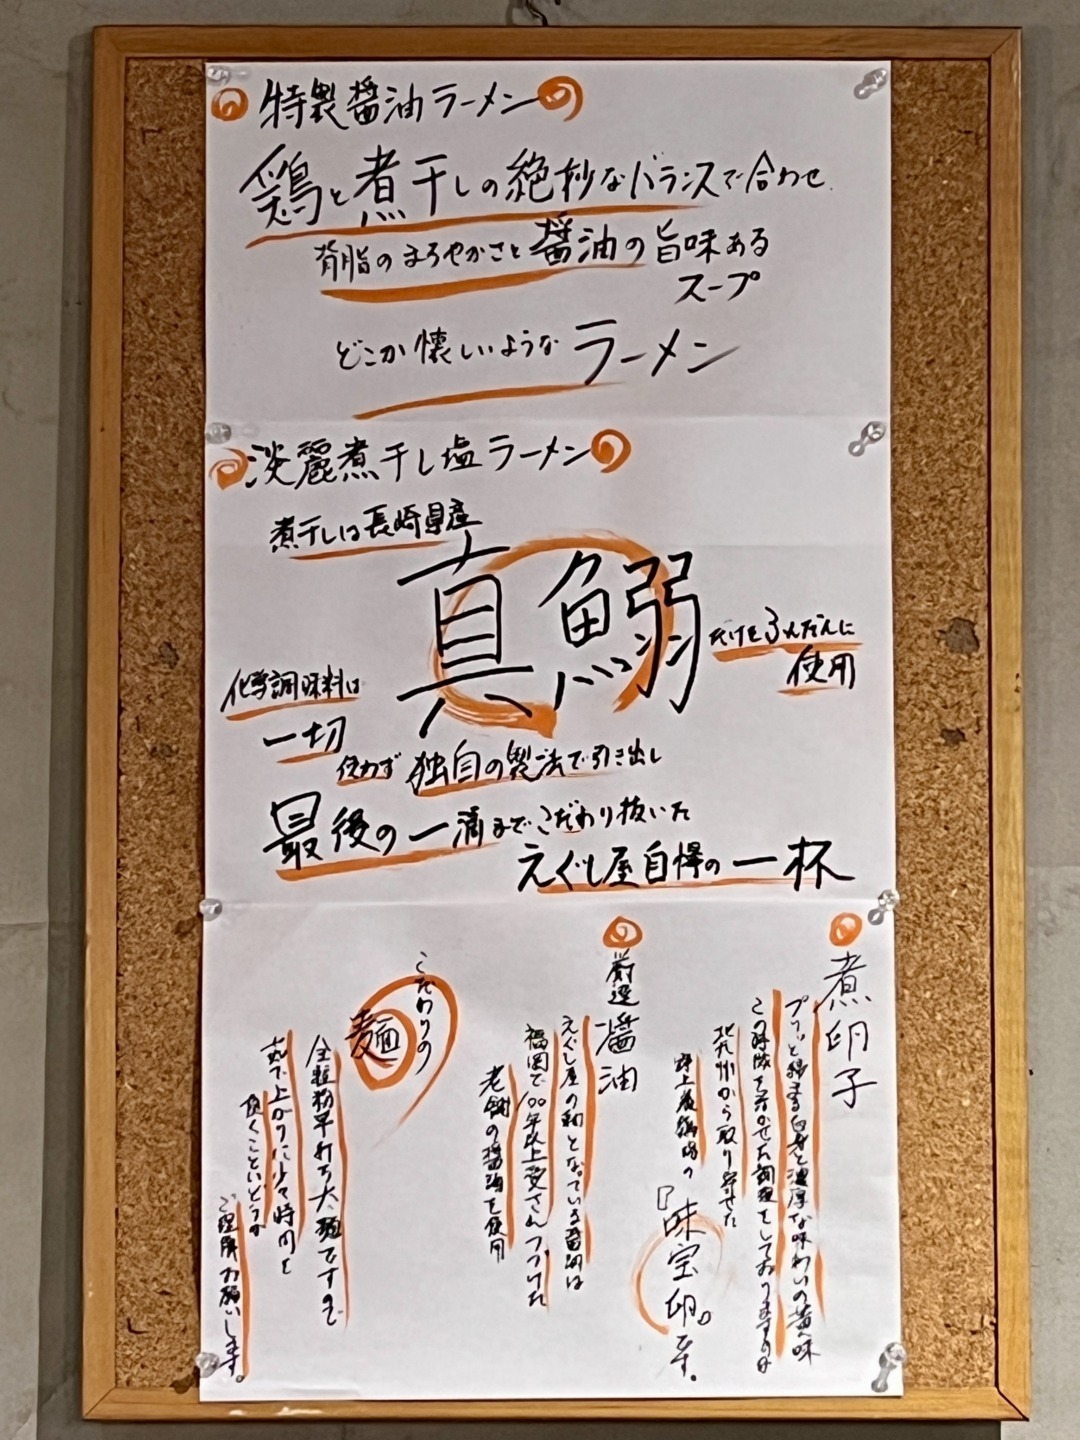 特製醤油ラーメン
鶏と煮干しの絶妙なバランスで合わせ
背脂のまろやかさと醤油の旨味ある
スープ
どこか懐しいような ラーメン
淡麗煮干し塩ラーメン
煮干しは長崎県産
真鰯
だけをふんだんに
使用
化学調味料は
一切
使わず 独自の製法で引き出し
最後の一滴までこだわり抜いた
えぐし屋自慢の一杯
煮卵子
プリッと締まる白身と濃厚な味わいの黄味
この特徴を活かせた調理をしております
北九州から取り寄せた
野上養鶏場の
『味宝卵』です。
厳選醤油
えぐし屋の軸となっている醤油は
福岡で100年以上愛されつづけた
老舗の醤油を使用
こだわりの
麺
全粒粉平打ち太麺ですので
茹で上がりに少々時間を
頂くこといとうか
ご理解お願いします。